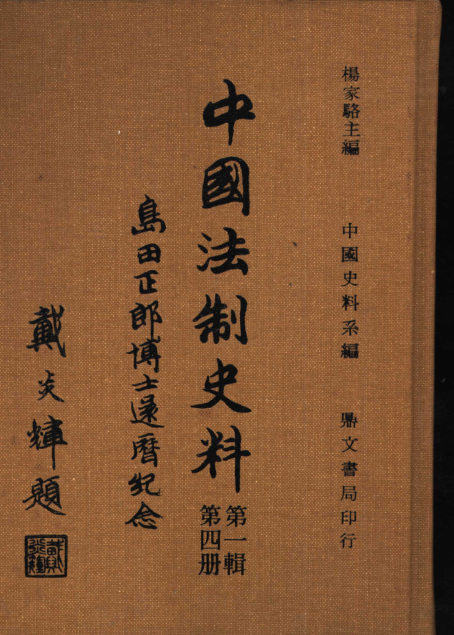 楊家駱主編 中國史料系編 鼎文書局印行
中國法制史料
第一輯
第四册
島田正郎博士還曆紀念
戴炎輝題